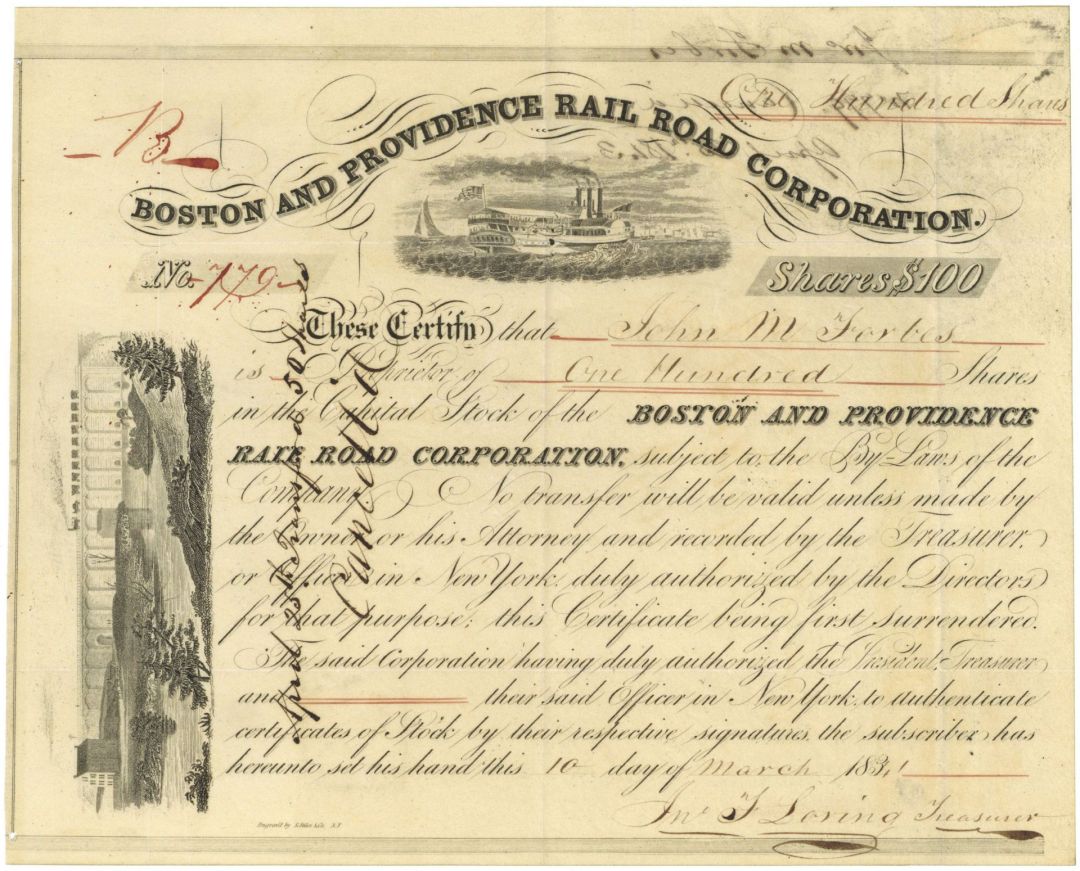 One Hundred Shares
B
BOSTON AND PROVIDENCE RAIL ROAD CORPORATION.
No. 779
Shares $100
These Certify that John M Forbes
is Proprietor of One Hundred Shares
in the Capital Stock of the BOSTON AND PROVIDENCE
RAIL ROAD CORPORATION, subject to the By-Laws of the
Company. No transfer will be valid unless made by
the owner or his Attorney and recorded by the Treasurer,
or Officer in New York duly authorized by the Directors
for that purpose; this Certificate being first surrendered.
The said Corporation having duly authorized the President, Treasurer
and their said Officer in New York, to authenticate
certificates of Stock by their respective signatures, the subscriber has
hereunto set his hand, this 10 day of March 183
Jno F Loring Treasurer
April 25th Transferred 50 Shares
Cancelled
Engraved by N.Y